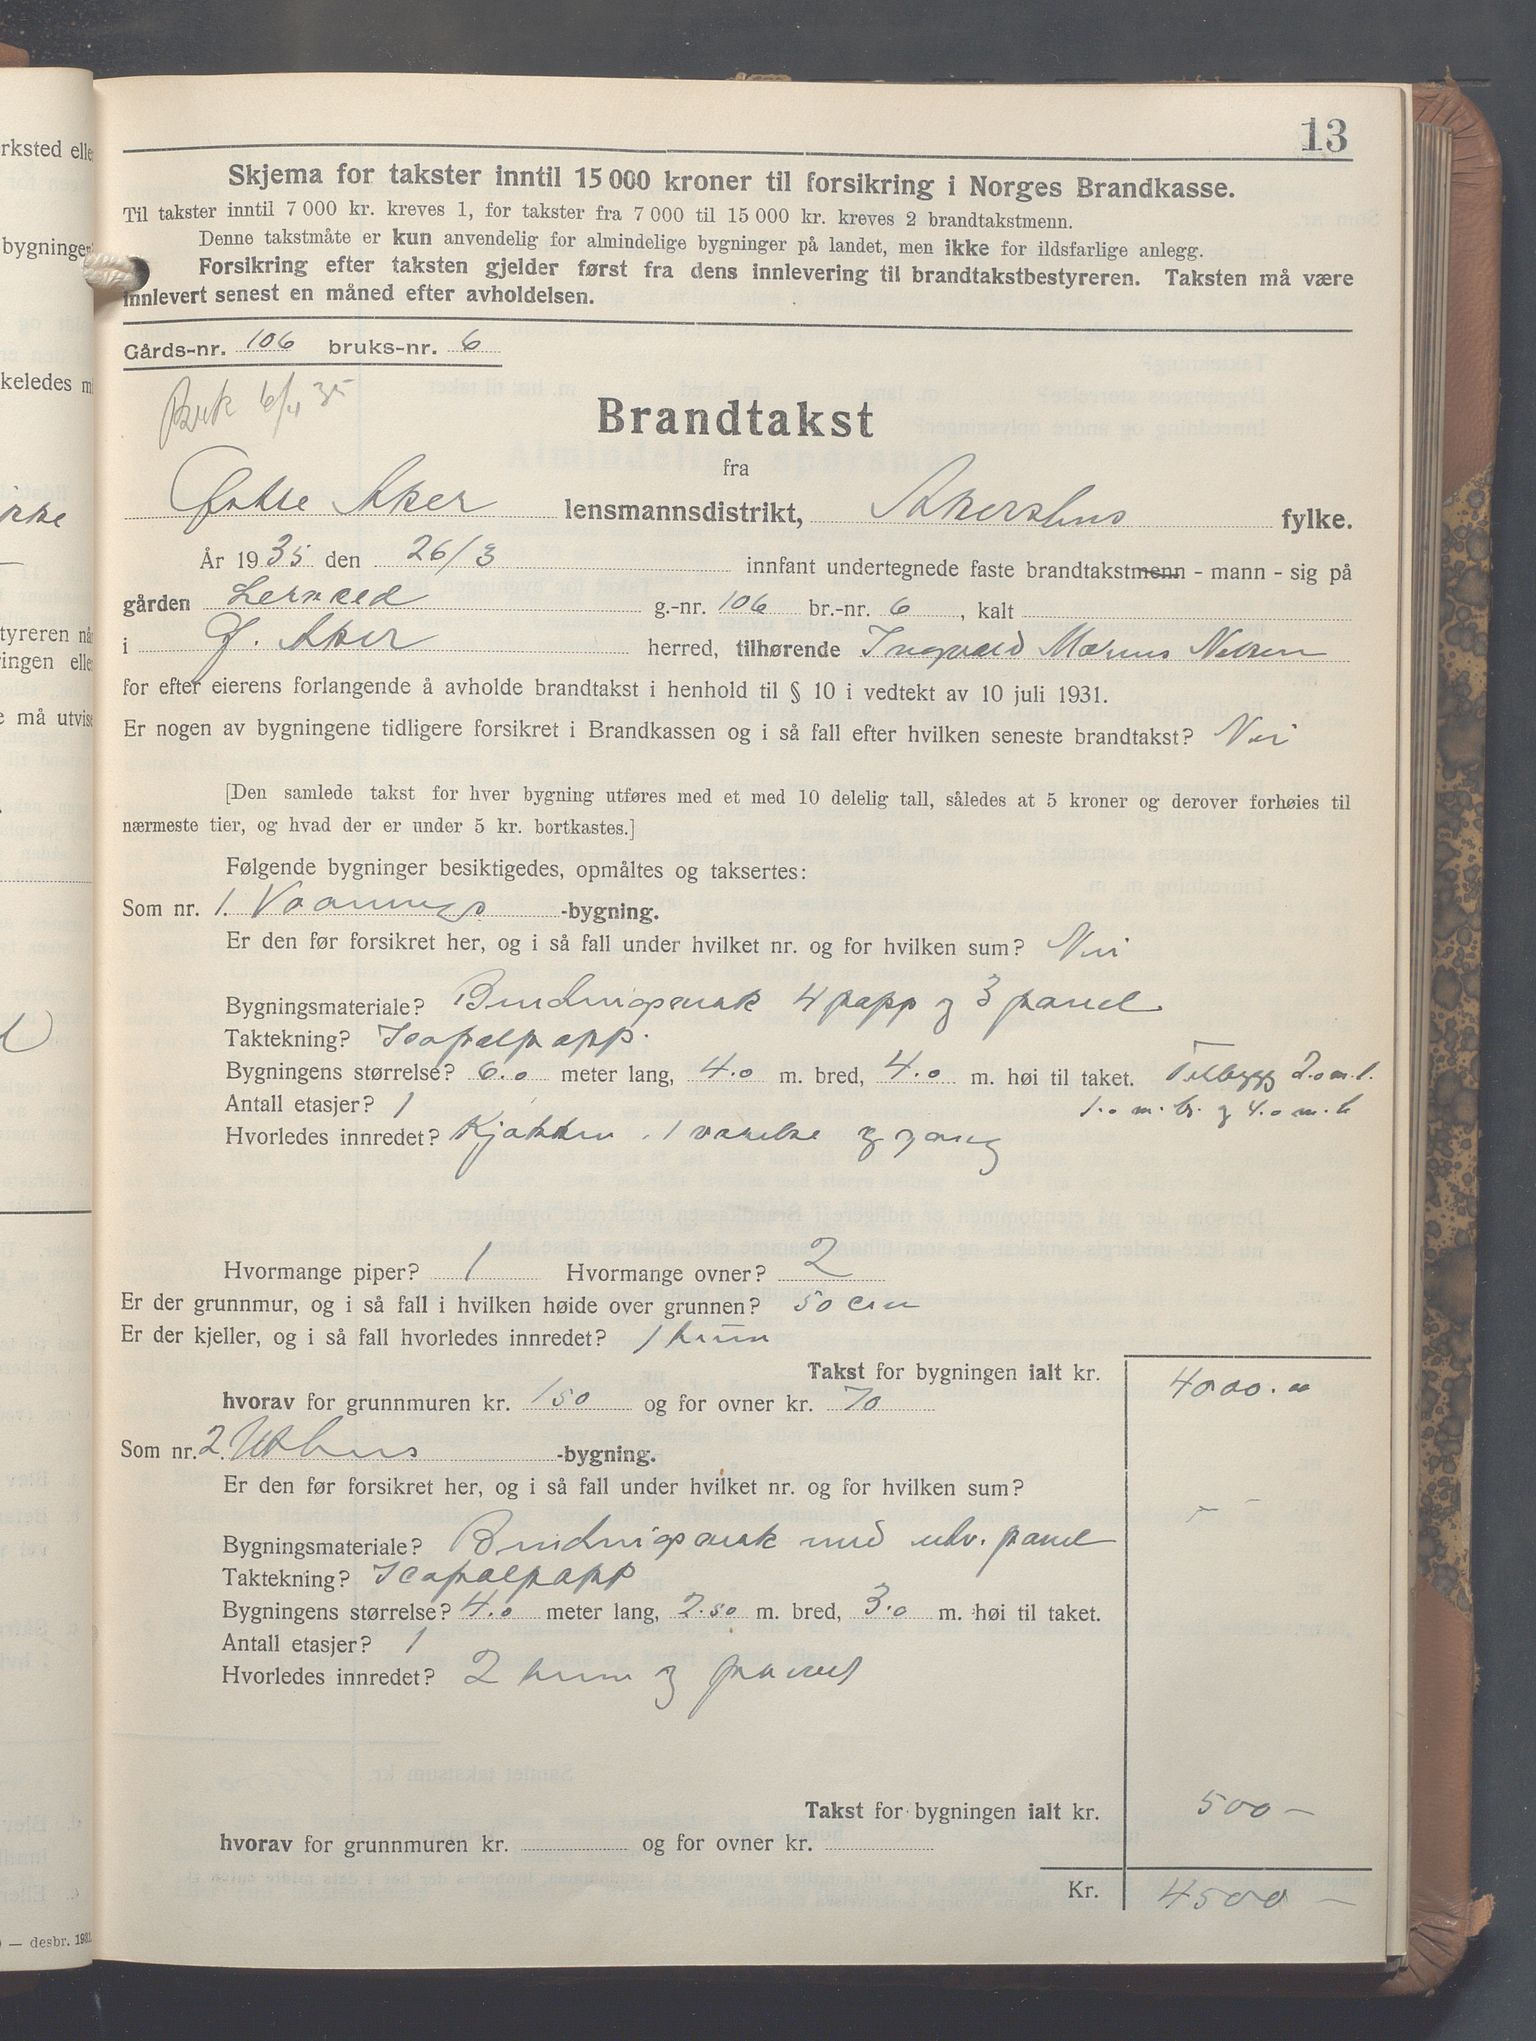 13
Skjema for takster inntil 15 000 kroner til forsikring i Norges Brandkasse.
Til takster inntil 7 000 kr. kreves 1, for takster fra 7 000 til 15 000 kr. kreves 2 brandtakstmenn.
Denne takstmåte er kun anvendelig for almindelige bygninger på landet, men ikke for ildsfarlige anlegg.
Forsikring efter taksten gjelder først fra dens innlevering til brandtakstbestyreren. Taksten må være
innlevert senest en måned efter avholdelsen.
Gårds-nr. 106 bruks-nr. 6
6/4 35
Brandtakst
fra
Østre Aker lensmannsdistrikt, Akershus fylke.
År 1935 den 26/3 innfant undertegnede faste brandtakstmenn - mann - sig på
gården g.-nr. 106 br.-nr. 6, kalt
i Ø. Aker herred, tilhørende Ingvald Marius Nilsen
for efter eierens forlangende å avholde brandtakst i henhold til § 10 i vedtekt av 10 juli 1931.
Er nogen av bygningene tidligere forsikret i Brandkassen og i så fall efter hvilken seneste brandtakst? Nei
[Den samlede takst for hver bygning utføres med et med 10 delelig tall, således at 5 kroner og derover forhøies til
nærmeste tier, og hvad der er under 5 kr. bortkastes.]
Følgende bygninger besiktigedes, opmåltes og taksertes:
Som nr. 1. Vaanings -bygning.
Er den før forsikret her, og i så fall under hvilket nr. og for hvilken sum? Nei
Bygningsmateriale? Bindingsverk 4 papp og 3 panel
Taktekning? Icopalpapp.
Bygningens størrelse? 6.0 meter lang, 4.0 m. bred, 4.0 m. høi til taket. Tilbygg 2.0 m. l.
1.0 m. br. og 4.0 m. h
Antall etasjer? 1
Hvorledes innredet? Kjøkken, 1 værelse og gang
Hvormange piper? 1 Hvormange ovner? 2
Er der grunnmur, og i så fall i hvilken høide over grunnen? 50 cm
Er der kjeller, og i så fall hvorledes innredet? 1 rum
Takst for bygningen ialt kr. 4000.00
hvorav for grunnmuren kr. 150 og for ovner kr. 70
Som nr. 2. Uthus -bygning.
Er den før forsikret her, og i så fall under hvilket nr. og for hvilken sum?
Bygningsmateriale? Bindingsverk med utv. panel
Taktekning? Icopalpapp
Bygningens størrelse? 4.0 meter lang, 2.50 m. bred, 3.0 m. høi til taket.
Antall etasjer? 1
Hvorledes innredet? 2 rum og privet
Takst for bygningen ialt kr. 500 —
hvorav for grunnmuren kr. og for ovner kr.
Kr. 4500 —